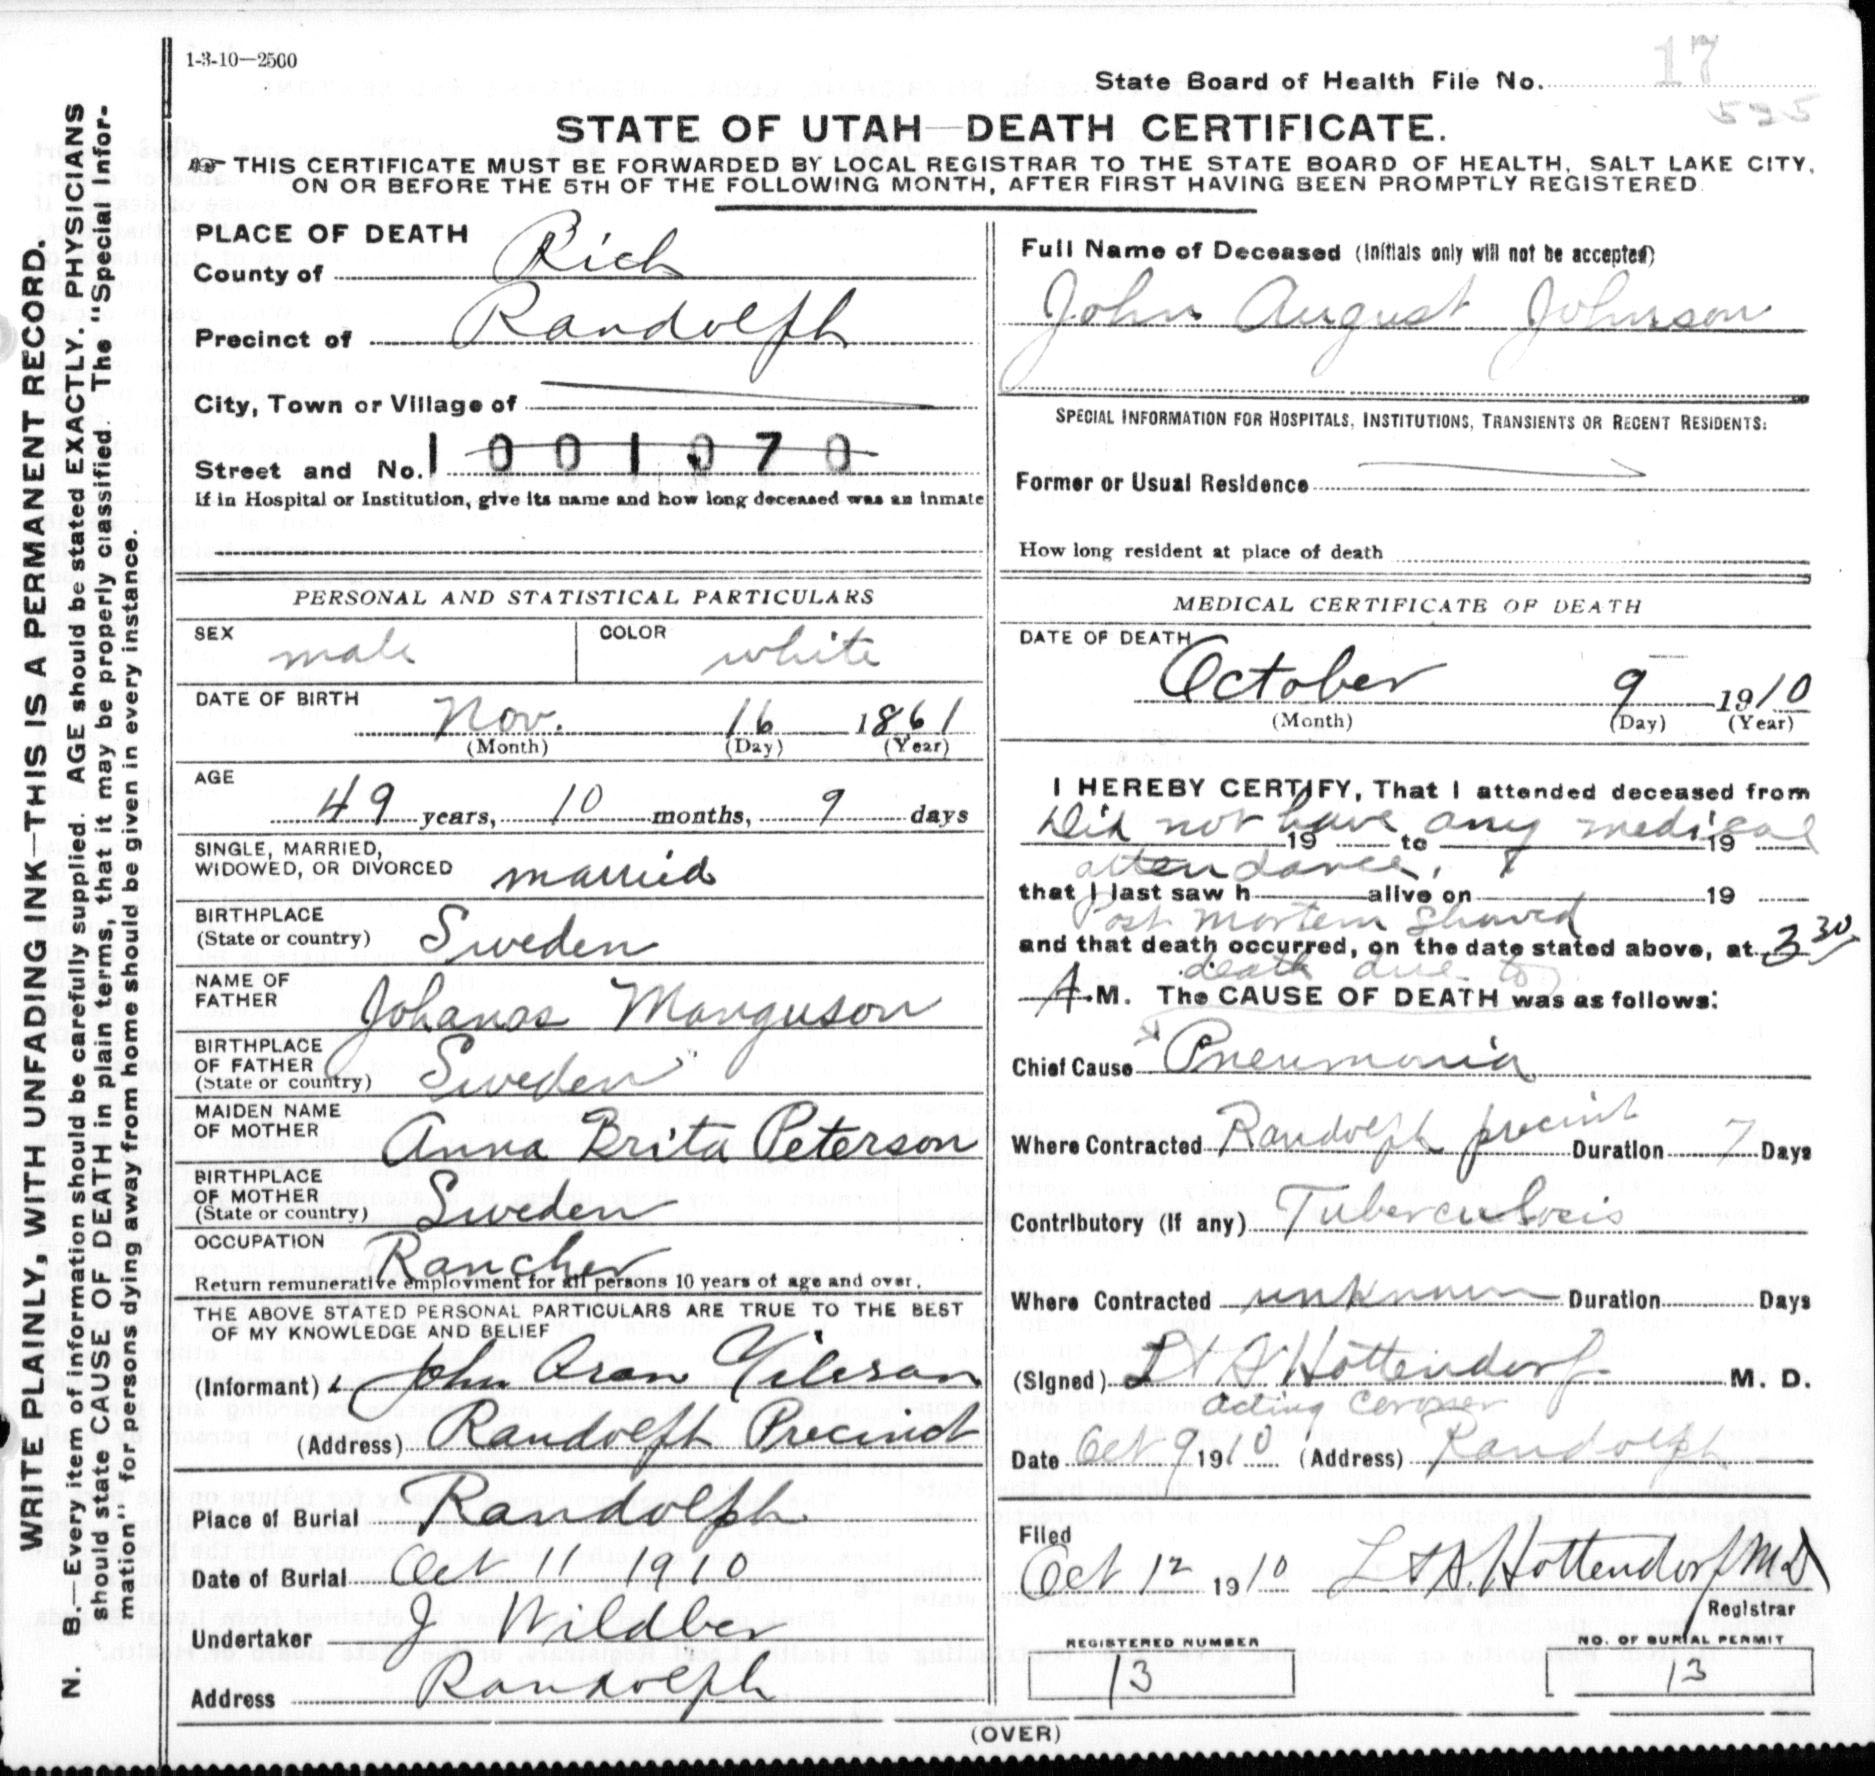 1-3-10—2500
State Board of Health File No. 17
535
STATE OF UTAH—DEATH CERTIFICATE.
THIS CERTIFICATE MUST BE FORWARDED BY LOCAL REGISTRAR TO THE STATE BOARD OF HEALTH, SALT LAKE CITY,
ON OR BEFORE THE 5TH OF THE FOLLOWING MONTH, AFTER FIRST HAVING BEEN PROMPTLY REGISTERED.
WRITE PLAINLY, WITH UNFADING INK—THIS IS A PERMANENT RECORD.
N. B.—Every item of information should be carefully supplied. AGE should be stated EXACTLY. PHYSICIANS
should state CAUSE OF DEATH in plain terms, that it may be properly classified. The "Special Infor-
mation" for persons dying away from home should be given in every instance.
PLACE OF DEATH
County of Rich
Precinct of Randolph
City, Town or Village of
Street and No. 1 001070
If in Hospital or Institution, give its name and how long deceased was an inmate
PERSONAL AND STATISTICAL PARTICULARS
SEX male COLOR white
DATE OF BIRTH
Nov. 16 1861
(Month) (Day) (Year)
AGE
49 years, 10 months, 9 days
SINGLE, MARRIED,
WIDOWED, OR DIVORCED married
BIRTHPLACE
(State or country) Sweden
NAME OF
FATHER Johanas Manguson
BIRTHPLACE
OF FATHER
(State or country) Sweden
MAIDEN NAME
OF MOTHER Anna Brita Peterson
BIRTHPLACE
OF MOTHER
(State or country) Sweden
OCCUPATION Rancher
Return remunerative employment for all persons 10 years of age and over.
THE ABOVE STATED PERSONAL PARTICULARS ARE TRUE TO THE BEST
OF MY KNOWLEDGE AND BELIEF
(Informant) John
(Address) Randolph Precinct
Place of Burial Randolph
Date of Burial Oct 11 1910
Undertaker J Wildber
Address Randolph
Full Name of Deceased (Initials only will not be accepted)
John August Johnson
SPECIAL INFORMATION FOR HOSPITALS, INSTITUTIONS, TRANSIENTS OR RECENT RESIDENTS:
Former or Usual Residence
How long resident at place of death
MEDICAL CERTIFICATE OF DEATH
DATE OF DEATH
October 9 1910
(Month) (Day) (Year)
I HEREBY CERTIFY, That I attended deceased from
Did not have any medical
19 to 19
attendance.
that I last saw h alive on 19
Post mortem showed
and that death occurred, on the date stated above, at 3 30
death due to
A. M. The CAUSE OF DEATH was as follows:
Chief Cause Pneumonia
Where Contracted Randolph precinct Duration 7 Days
Contributory (if any) Tuberculosis
Where Contracted unknown Duration Days
(Signed) Hottendorf M. D.
acting Coroner
Date Oct 9 1910 (Address) Randolph
Filed
Oct 12 1910 Hottendorf M D
Registrar
REGISTERED NUMBER
13
NO. OF BURIAL PERMIT
13
(OVER)